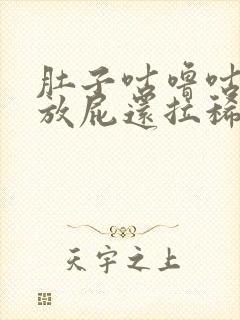 肚子咕噜咕
放屁還拉稀
天宇之上